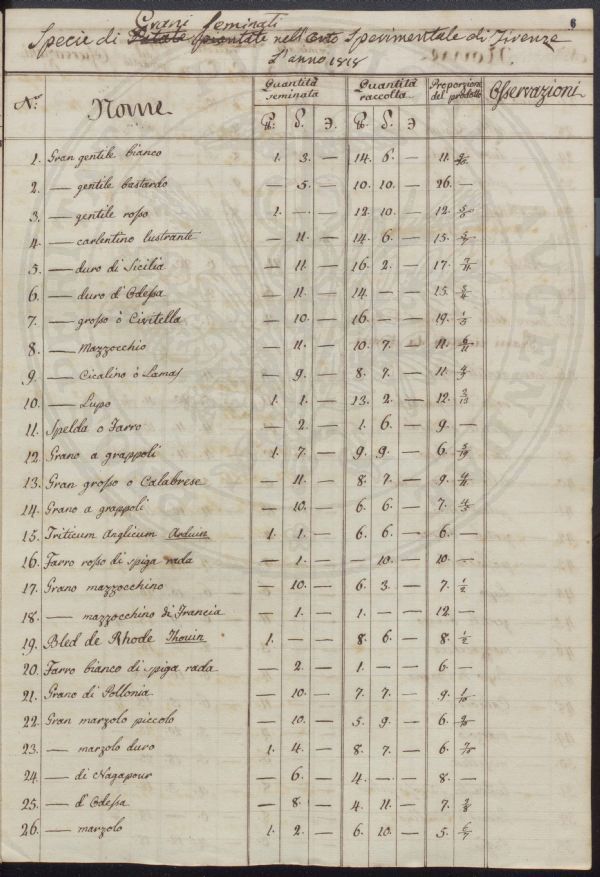 6
Grani seminati
Specie di Patate piantate nell'Orto Sperimentale di Firenze
L'anno 1818
N.º Nome Quantità seminata Quantità raccolta Proporzione del prodotto Osservazioni
℔: δ. ℔. δ.
1. Gran gentile bianco 1. 3. — 14. 6. — 11.
2. — gentile bastardo — 5. — 10. 10. — 26. —
3. — gentile roſso 1. — — 12. 10. — 12.
4. — carlentino lustrante — 11. — 14. 6. — 15.
5. — duro di Sicilia — 11. — 16. 2. — 17.
6. — duro d'Odeſsa — 11. — 14. — — 15.
7. — groſso ò Civitella — 10. — 16. — — 19. 1/5
8. — Mazzocchio — 11. — 10. 7. — 11. 6/11
9. — Cicalino ò Lamas — 9. — 8. 7. — 11. 4/9
10. — Lupo 1. 1. — 13. 2. — 12. 2/13
11. Spelda o Farro — 2. — 1. 6. — 9. —
12. Grano a grappoli 1. 7. — 9. 9. — 6.
13. Gran groſso o Calabrese — 11. — 8. 7. — 9. 4/11
14. Grano a grappoli — 10. — 6. 6. — 7.
15. Triticum Anglicum Arduin 1. 1. — 6. 6. — 6. —
16. Farro roſso di spiga rada — 1. — — 10. — 10. —
17. Grano mazzocchino — 10. — 6. 3. — 7. 1/2
18. — mazzocchino di Francia — 1. — 1. — — 12. —
19. Bled de Rhode Thouin 1. — — 8. 6. — 8. 1/2
20. Farro bianco di spiga rada — 2. — 1. — — 6. —
21. Grano di Pollonia — 10. — 7. 7. — 9. 1/10
22. Gran marzolo piccolo — 10. — 5. 9. — 6.
23. — marzolo duro 1. 4. — 8. 7. — 6.
24. — di Nagapour — 6. — 4. — — 8. —
25. — d'Odeſsa — 8. — 4. 11. — 7. 3/8
26. — marzolo 1. 2. — 6. 10. — 5. 6/7